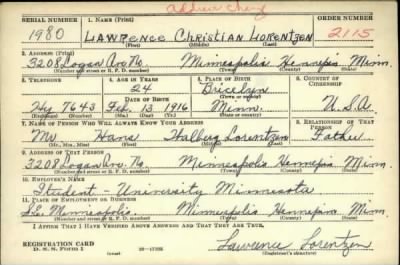 address change
SERIAL NUMBER 1. NAME (Print) ORDER NUMBER
1980 LAWRENCE Christian LORENTZEN 2115
(First) (Middle) (Last)
2. ADDRESS (Print)
3208 Logan Av. No. Minneapolis Hennepin Minn.
(Number and street or R. F. D. number) (Town) (County) (State)
3. TELEPHONE 4. AGE IN YEARS 5. PLACE OF BIRTH 6. COUNTRY OF CITIZENSHIP
24 Bricelyn
DATE OF BIRTH
Hy 7643 Feb. 13 1916 Minn. U.S.A
(Exchange) (Number) (Mo.) (Day) (Yr.) (State or country)
7. NAME OF PERSON WHO WILL ALWAYS KNOW YOUR ADDRESS 8. RELATIONSHIP OF THAT PERSON
Mr Hans Lorentzen Father
(Mr., Mrs., Miss) (First) (Middle) (Last)
9. ADDRESS OF THAT PERSON
3208 Logan Av. No. Minneapolis Hennepin Minn.
(Number and street or R. F. D. number) (Town) (County) (State)
10. EMPLOYER'S NAME
Student - University Minnesota
11. PLACE OF EMPLOYMENT OR BUSINESS
S.E. Minneapolis. Minneapolis Hennepin Minn.
(Number and street or R. F. D. number) (Town) (County) (State)
I AFFIRM THAT I HAVE VERIFIED ABOVE ANSWERS AND THAT THEY ARE TRUE.
REGISTRATION CARD
D. S. S. Form 1 (over) 16-17105 Lawrence Lorentzen
(Registrant's signature)